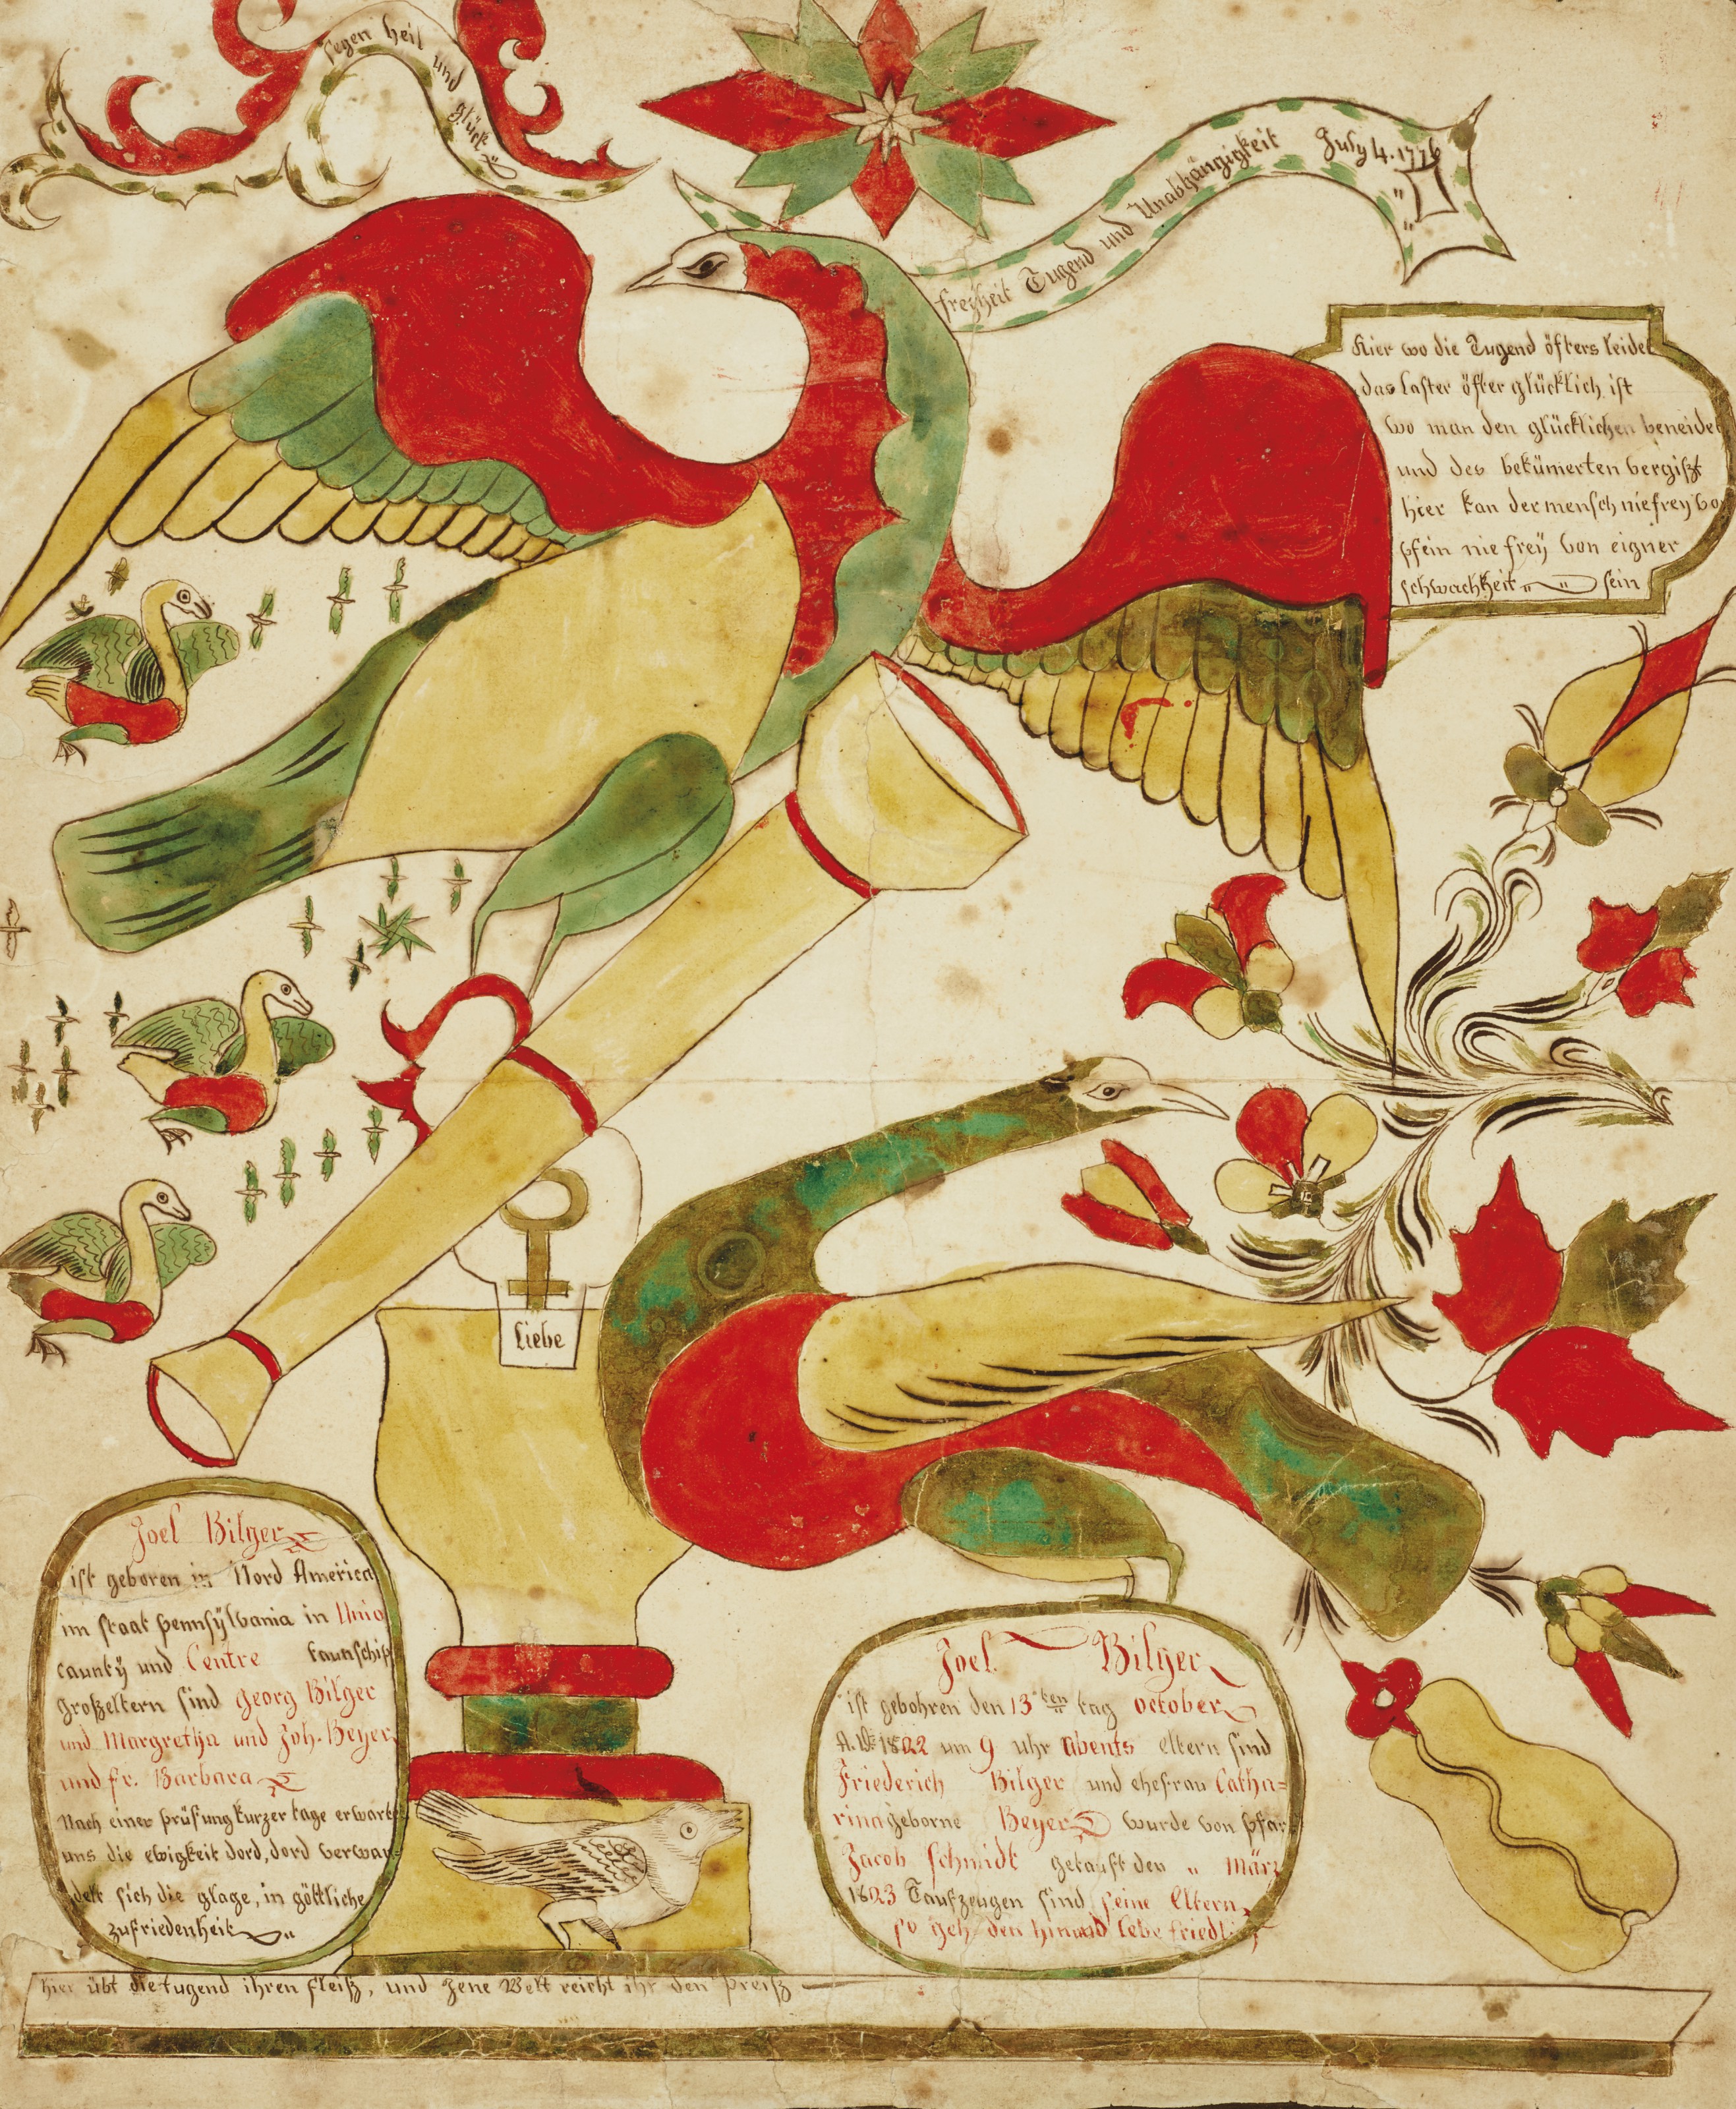 segen heil und glück
freyheit Tugend und Unabhängigkeit July 4. 1776
Hier wo die Tugend öfters leidet
das laster öfter glücklich ist
wo man den glücklichen beneidet
und des bekümerten vergißt
hier kan der mensch nie frey vo
pein nie frey von eigner
schwachheit sein
Liebe
Joel Bilger
ist geboren in Nord America
im staat pennsylvania in Unio
caunty und Centre taunschip
großeltern sind georg Bilger
und Margretha und Joh. Beyer
und fr. Barbara
Nach einer prüfung kurzer tage erwartet
uns die ewigkeit dord, dord verwan
delt sich die glage, in göttliche
zufriedenheit
Joel Bilger
ist gebohren den 13ten tag october
A.D. 1822 um 9 uhr abents eltern sind
Friederich Bilger und ehefrau Catha=
rina geborne Beyer wurde von pfar
Jacob schmidt getauft den " März
1823 Taufzeugen sind seine eltern
so geh den hin und lebe friedli
hier übt die tugend ihren fleiß, und jene Welt reicht ihr den preiß